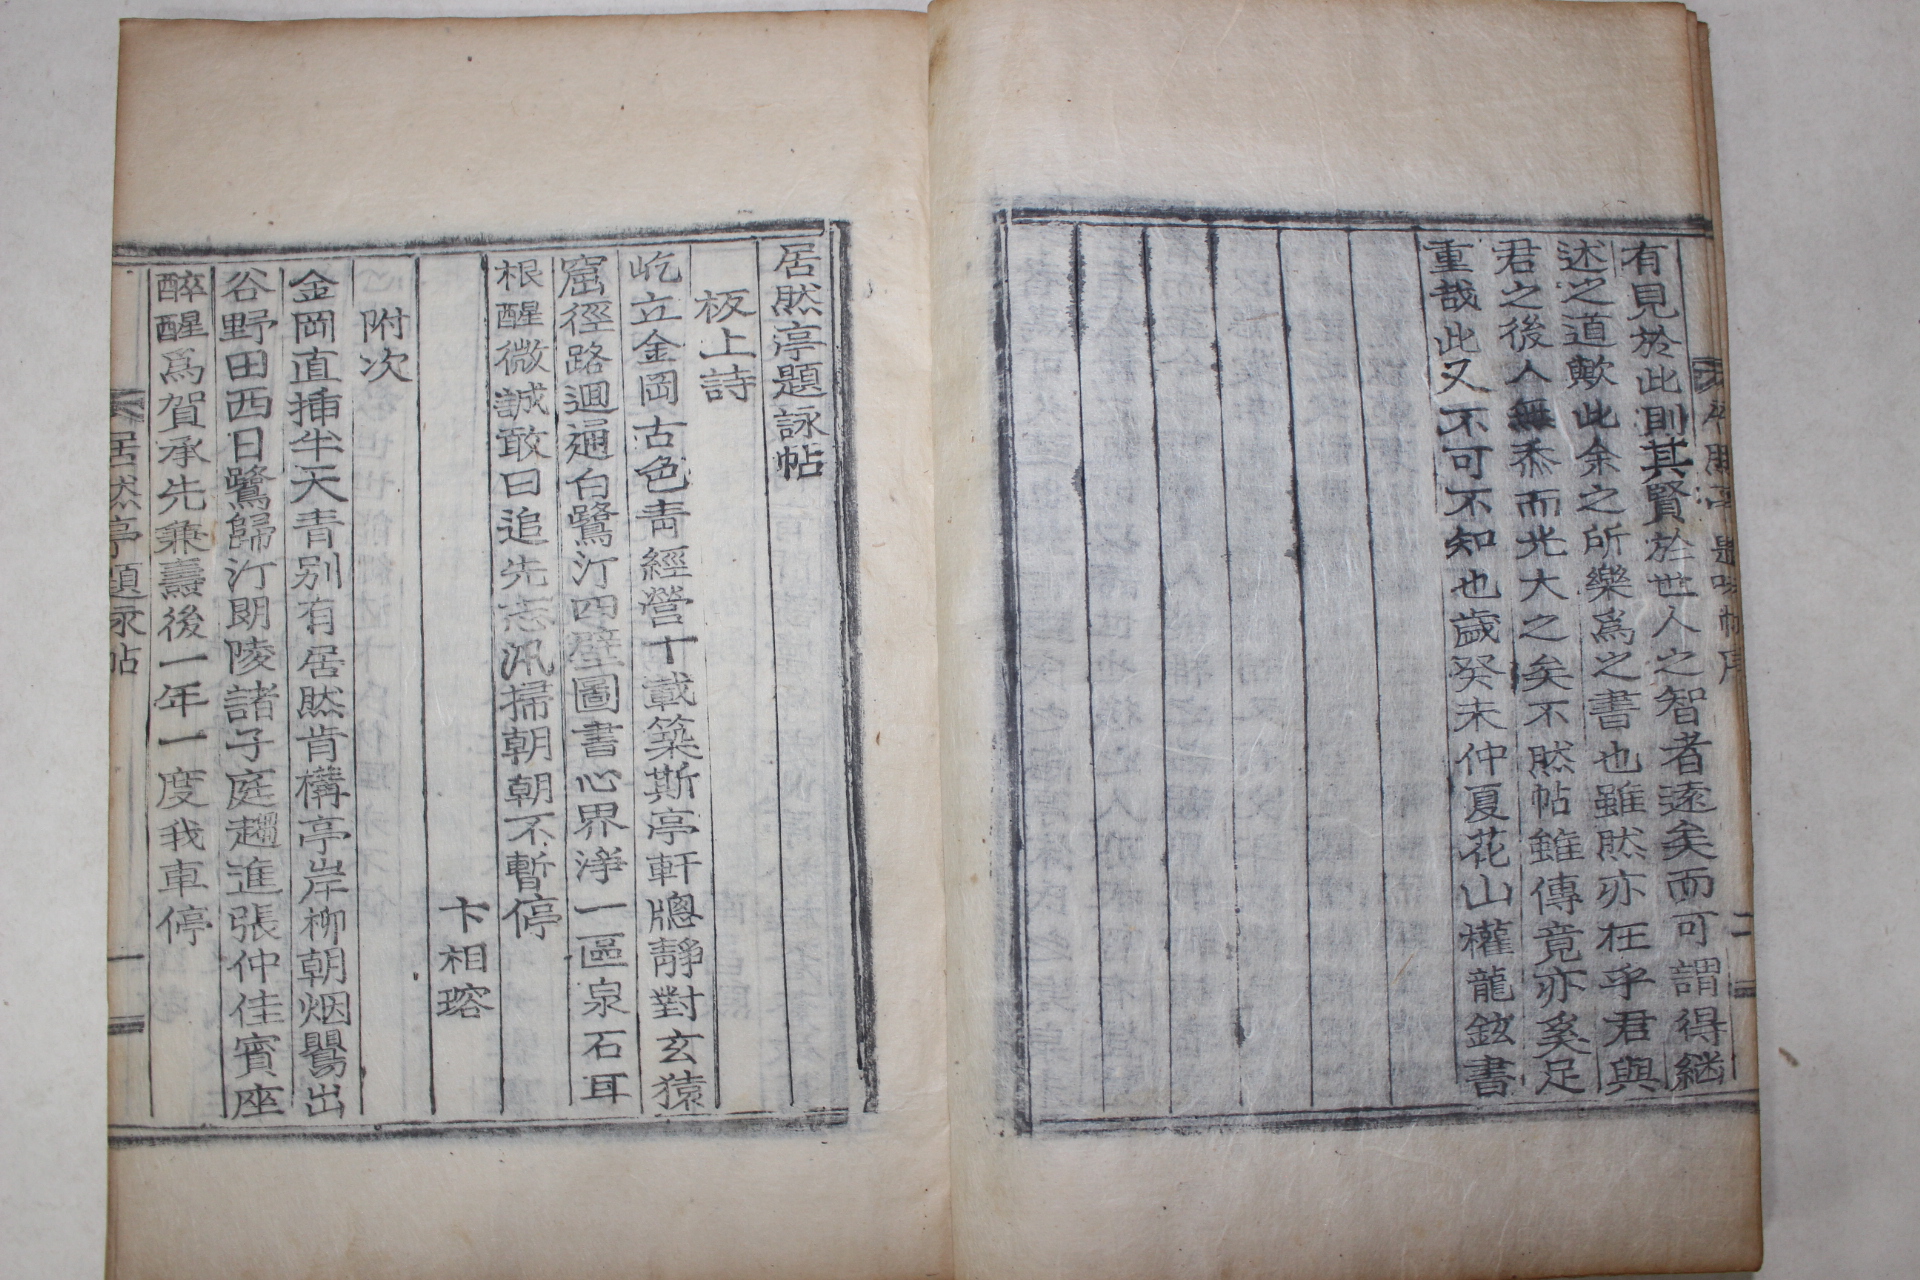 有見於此則其賢於世人之智者遠矣而可謂得継
述之道歟此余之所樂爲之書也雖然亦在乎君與
君之後人無忝而光大之矣不然帖雖傳竟亦奚足
重哉此又不可不知也歲癸未仲夏花山權龍鉉書
居然亭題詠帖
板上詩
屹立金岡古色青經營十載築斯亭軒牕靜對玄猿
窟徑路迴通白鷺汀四壁圖書心界淨一區泉石耳
根醒微誠敢曰追先志汛掃朝朝不暫停
卞相瑢
附次
金岡直揷半天青別有居然肯構亭岸柳朝烟鸎出
谷野田西日鷺歸汀朗陵諸子庭趨進張仲佳賓座
醉醒爲賀承先兼壽後一年一度我車停
居然亭題詠帖
一